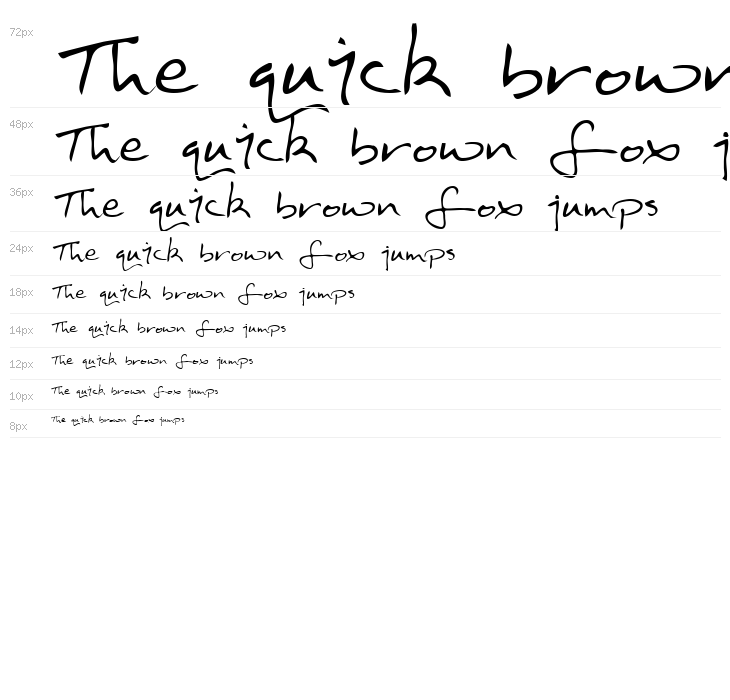 72px The quick brown
48px The quick brown fox j
36px The quick brown fox jumps
24px The quick brown fox jumps
18px The quick brown fox jumps
14px The quick brown fox jumps
12px The quick brown fox jumps
10px The quick brown fox jumps
8px The quick brown fox jumps